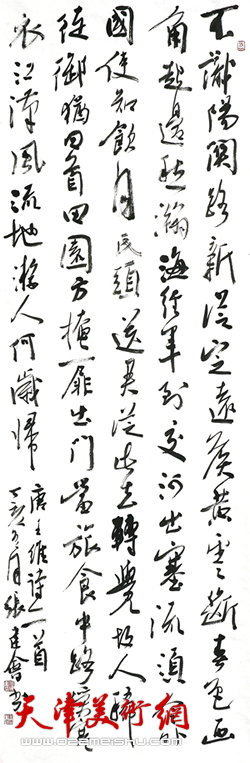 不識陽關路新從定遠侯黃雲斷春色画
角起邊愁瀚海經年到交河出塞流須令外
國使知飲月氏頭送君從此去轉覺故人稀
徒御猶回首田園方掩扉出門當旅食中路授寒
衣江漢風流地游人何歲歸
唐王維詩二首
丁亥月張建會書
天津美術網
www.022meishu.com